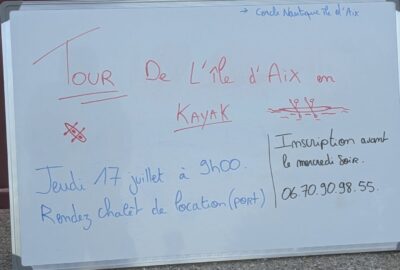 → Cercle Nautique île d'Aix
Tour De L'île d'Aix en
Kayak
Jeudi 17 juillet à 9h00.
Rendez chalêt de location (port)
Inscription avant
le mercredi soir.
06.70.90.98.55.